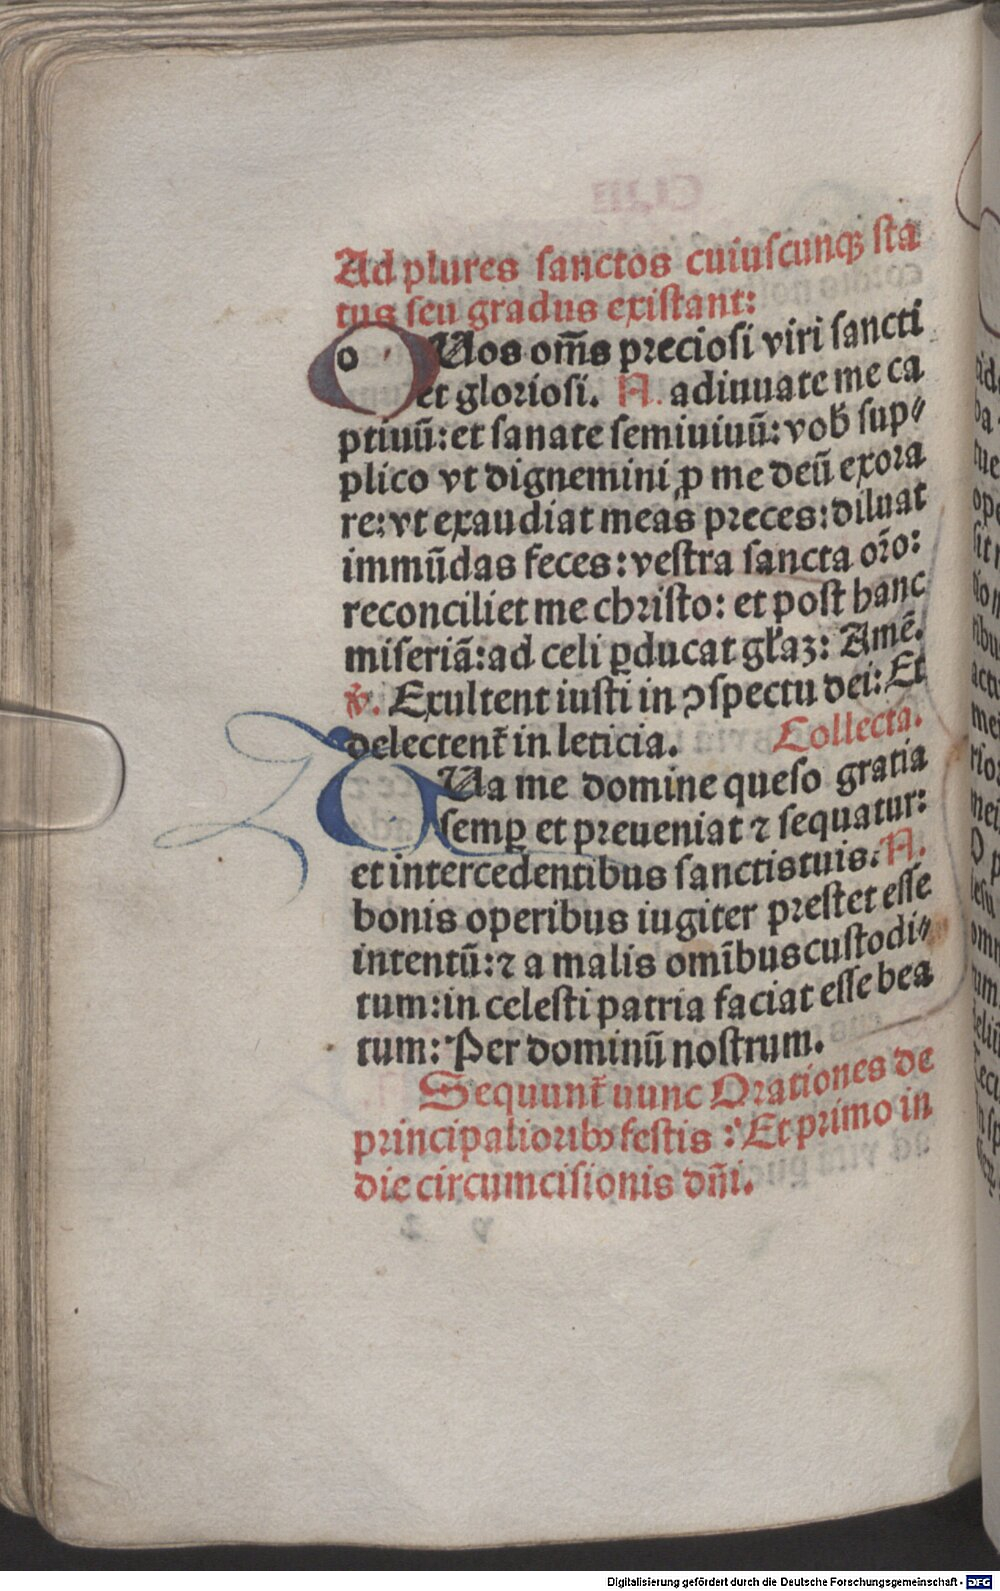 Ad plures sanctos cuiuscunqꝫ sta
tus seu gradus existant:
O Uos om̄s preciosi viri sancti
et gloriosi. N. adiuuate me ca
ptiuū: et sanate semiuiuū: vob̄ sup⸗
plico vt dignemini ꝓ me deū exora
re: vt exaudiat meas preces: diluat
immūdas feces: vestra sancta oꝛ̄o:
reconciliet me christo: et post hanc
miseriā: ad celi ꝑducat gl̄aꝫ: Amē.
v̄. Exultent iusti in ꝯspectu dei: Et
delectent̄ in leticia. Collecta.
Ua me domine queso gratia
semꝑ et preueniat ⁊ sequatur:
et intercedentibus sanctis tuis. N.
bonis operibus iugiter prestet esse
intentū: ⁊ a malis om̄ibus custodi⸗
tum: in celesti patria faciat esse bea
tum: Per dominū nostrum.
Sequunt̄ nunc Orationes de
principalioribꝰ festis: Et primo in
die circumcisionis dn̄i.
Digitalisierung gefördert durch die Deutsche Forschungsgemeinschaft - DFG